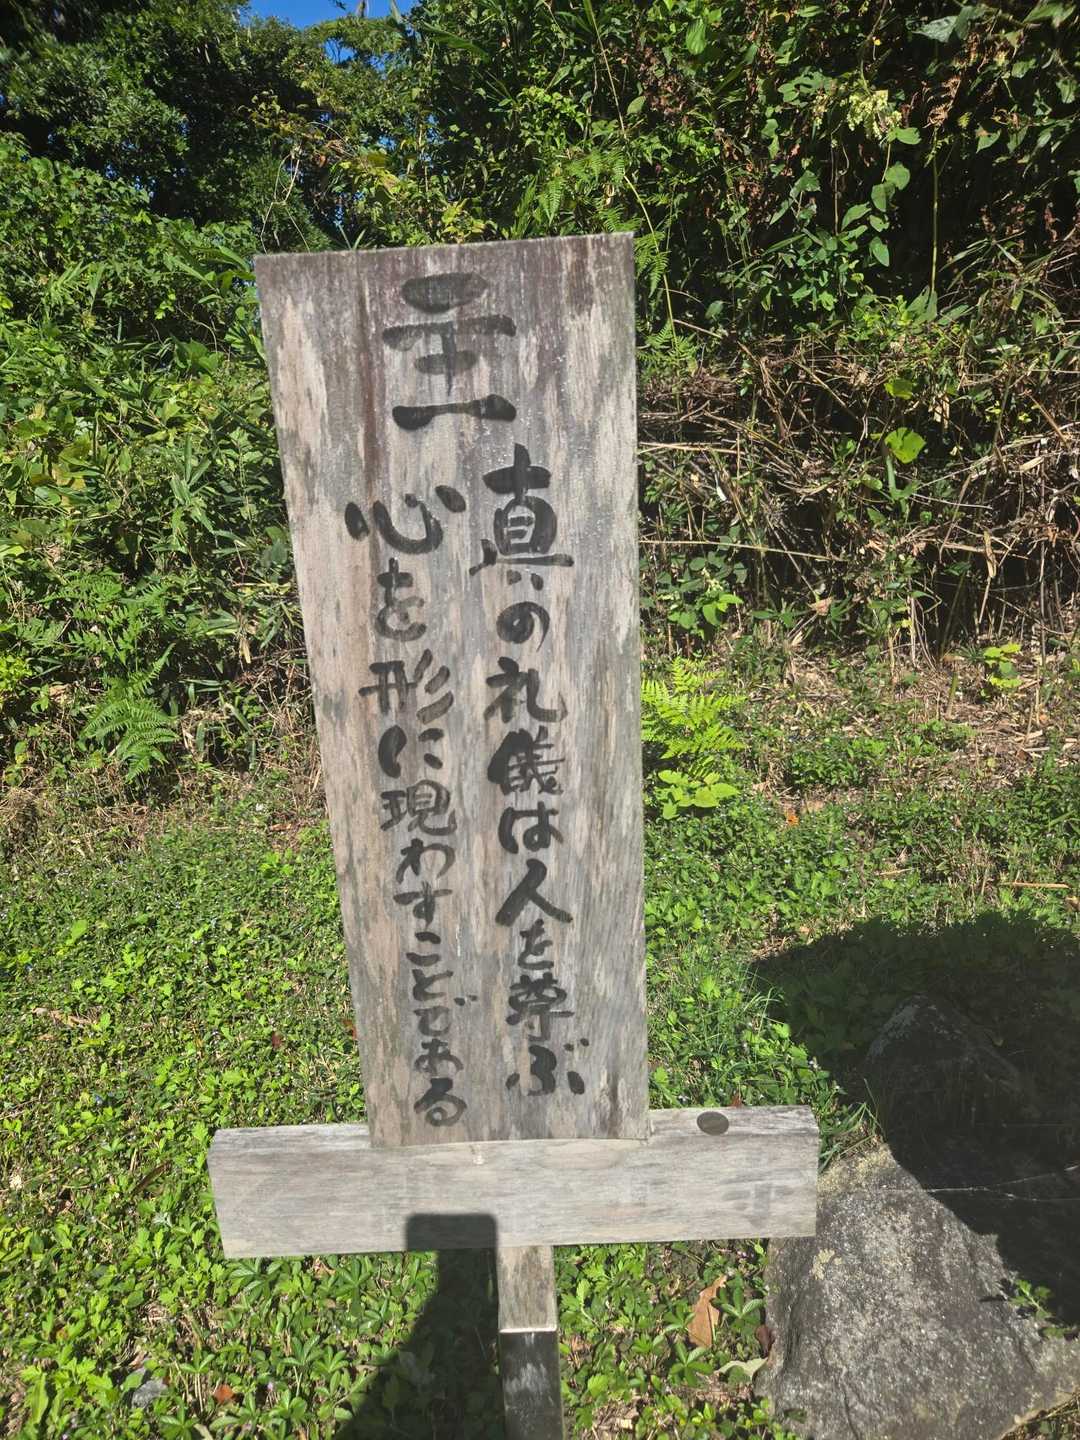 二十一
真の礼儀は人を尊ぶ
心を形に現わすことである